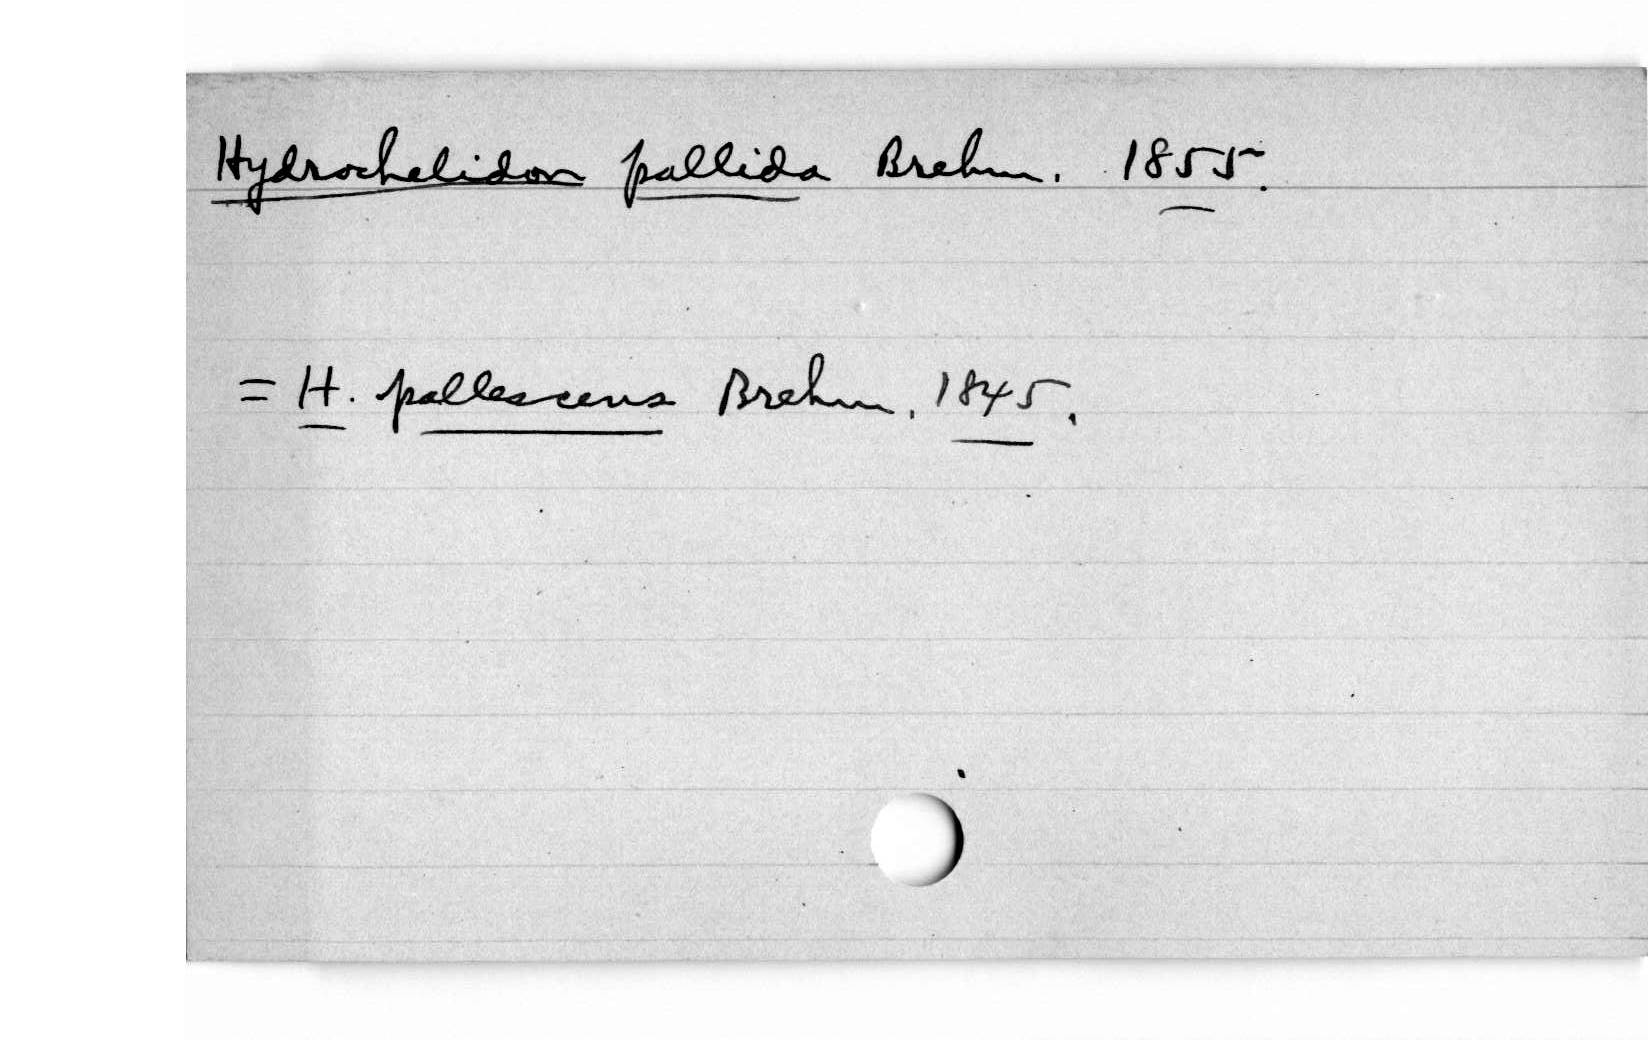 Hydrochelidon pallida Brehm. 1855.
= H. pallescens Brehm. 1845.